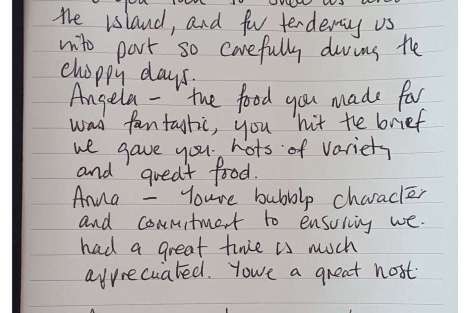 the island, and for tendering us
into port so carefully during the
choppy days.
Angela - the food you made for
was fantastic, you hit the brief
we gave you. Lots of variety
and great food.
Anna - Youre bubbly character
and commitment to ensuring we
had a great time is much
appreciated. Youre a great host.